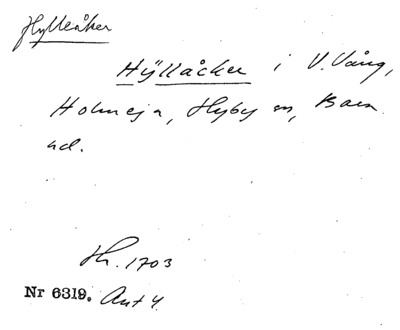 Hylleåker
Hÿllåcker i V. Vång,
Holmeja, Hyby sn, Bara
hd.
Hr. 1703
Nr 6319. Ant 4.